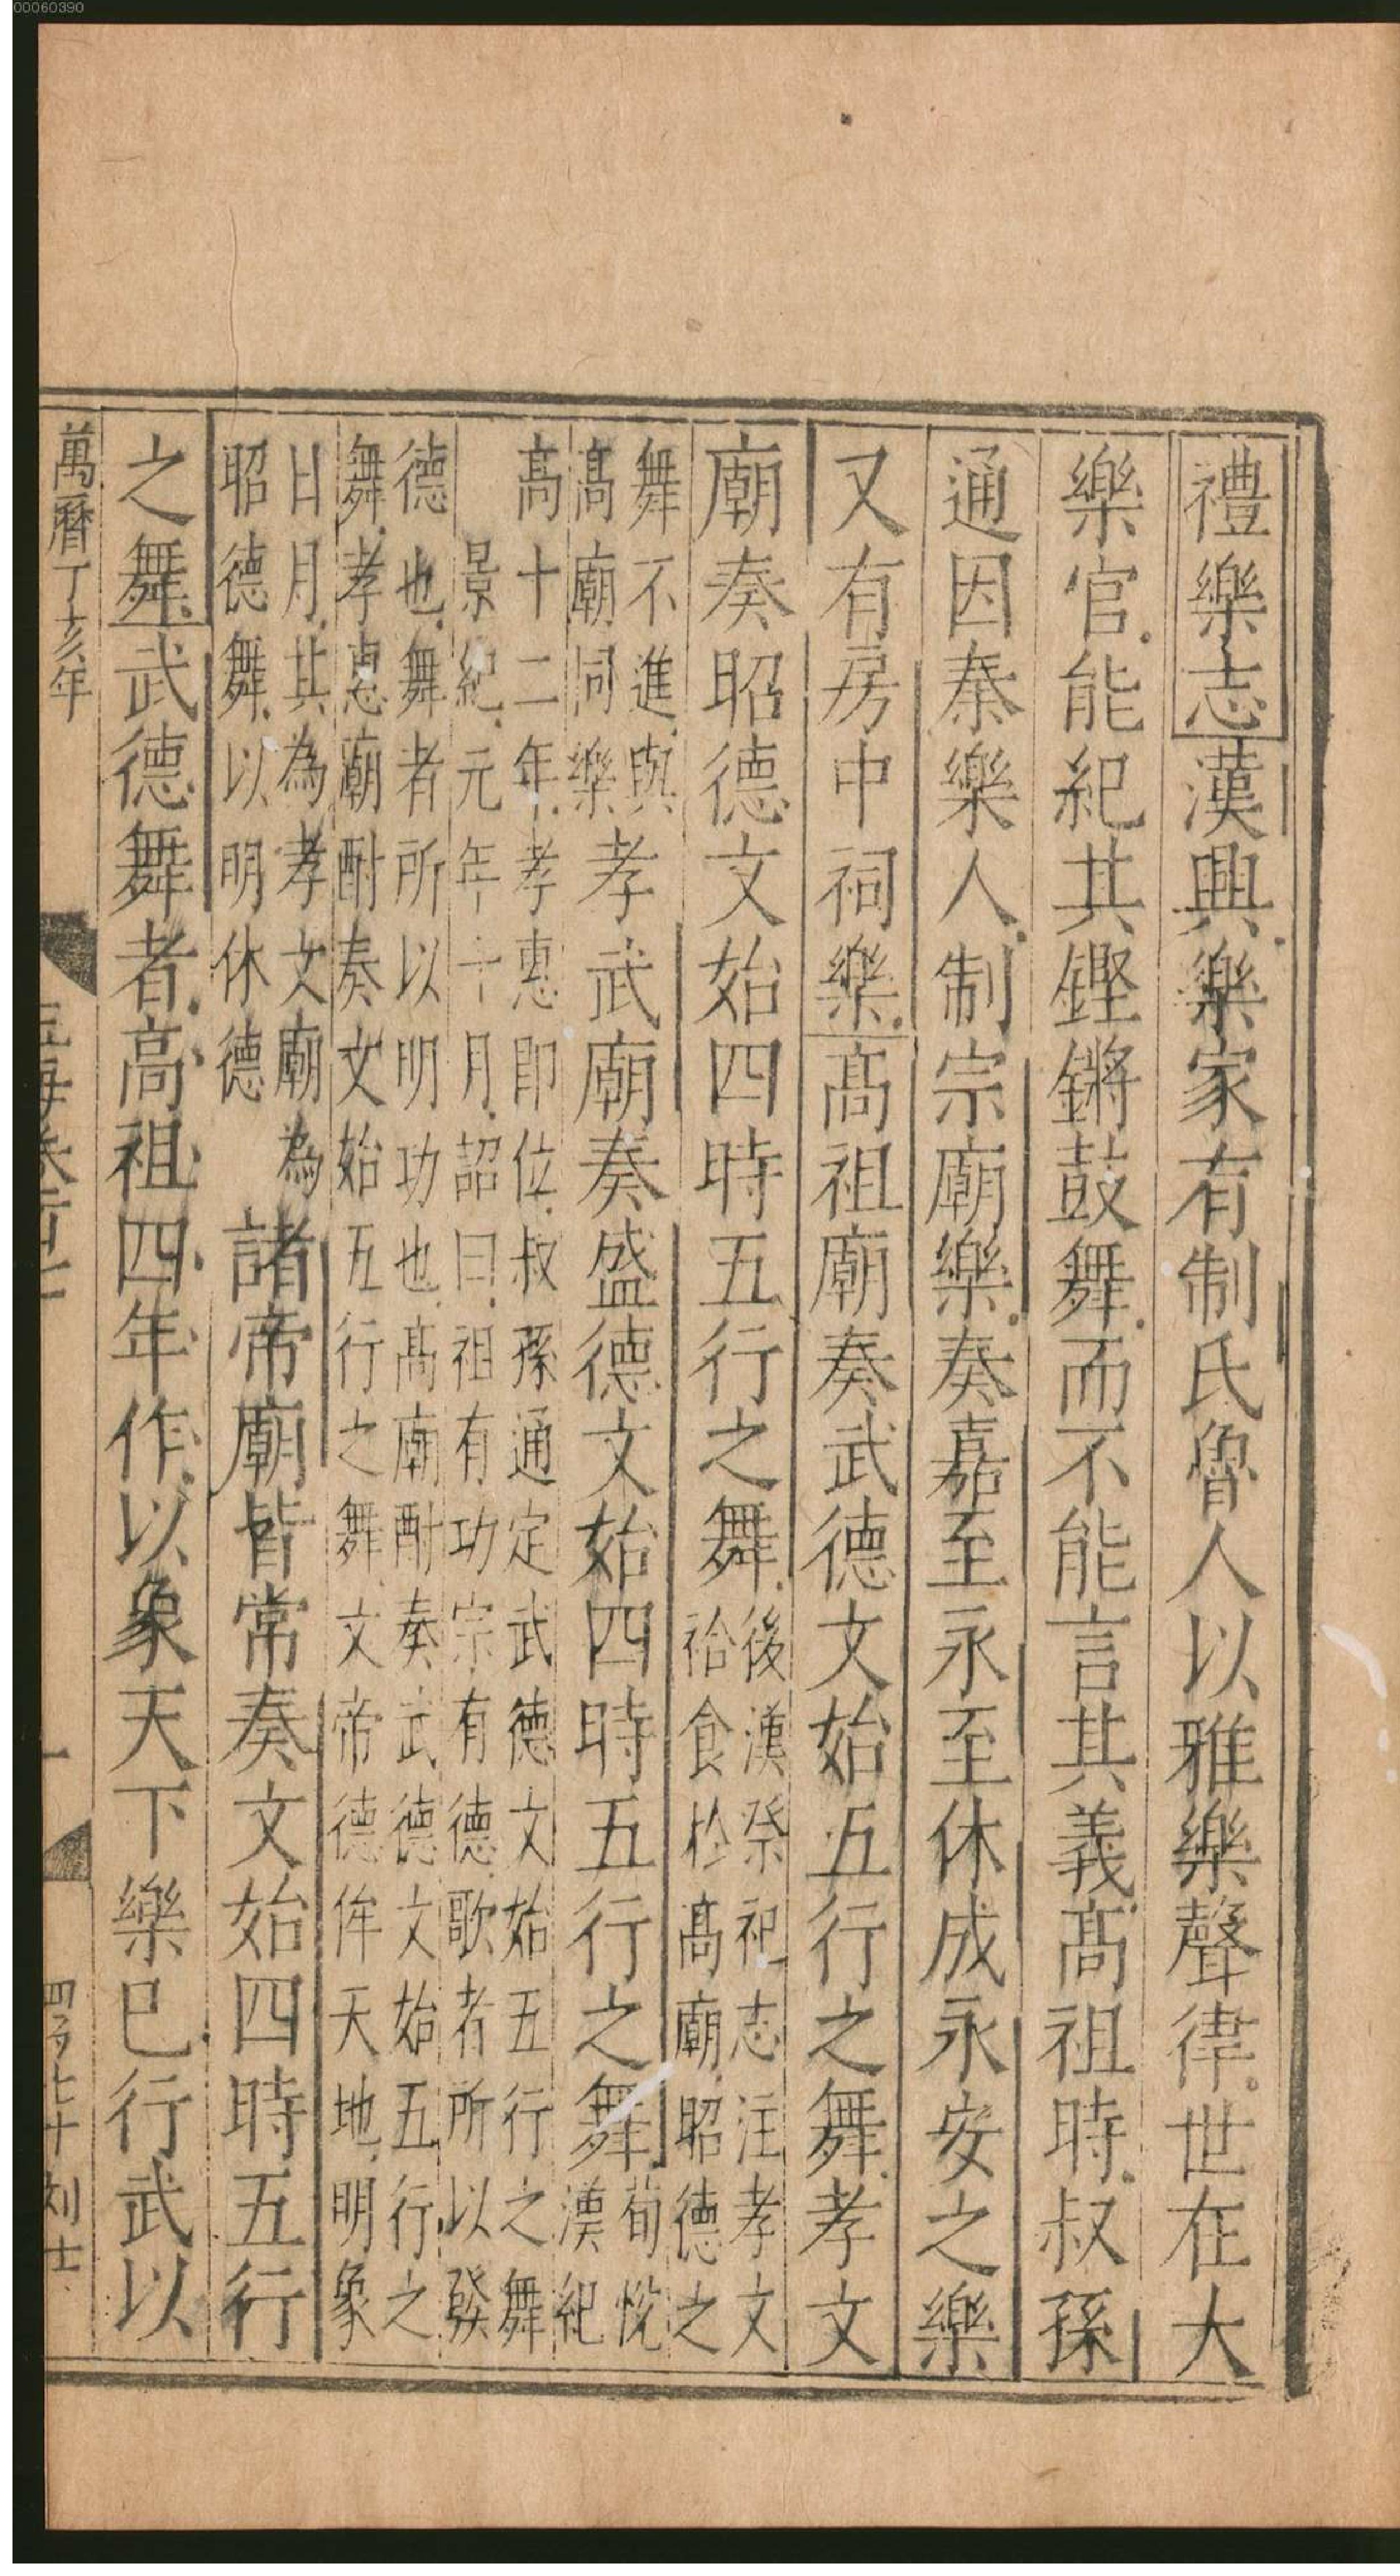 00060390
禮樂志漢興樂家有制氏魯人以雅樂聲律世在大
樂官能紀其鏗鏘鼓舞而不能言其義髙祖時叔孫
通因秦樂人制宗廟樂奏嘉至永至休成永安之樂
又有房中祠樂髙祖廟奏武德文始五行之舞孝文
廟奏昭德文始四時五行之舞後漢祭祀志注孝文
祫食於髙廟昭德之
舞不進與
髙廟同樂孝武廟奏盛德文始四時五行之舞荀悅
漢紀
髙十二年孝惠即位叔孫通定武德文始五行之舞
景紀元年十月詔曰祖有功宗有德歌者所以發
德也舞者所以明功也髙廟酎奏武德文始五行之
舞孝惠廟酎奏文始五行之舞文帝德侔天地明象
日月其為孝文廟為
昭德舞以明休德諸帝廟皆常奏文始四時五行
之舞武德舞者高祖四年作以象天下樂已行武以
萬曆丁亥年
四百七十 刘士